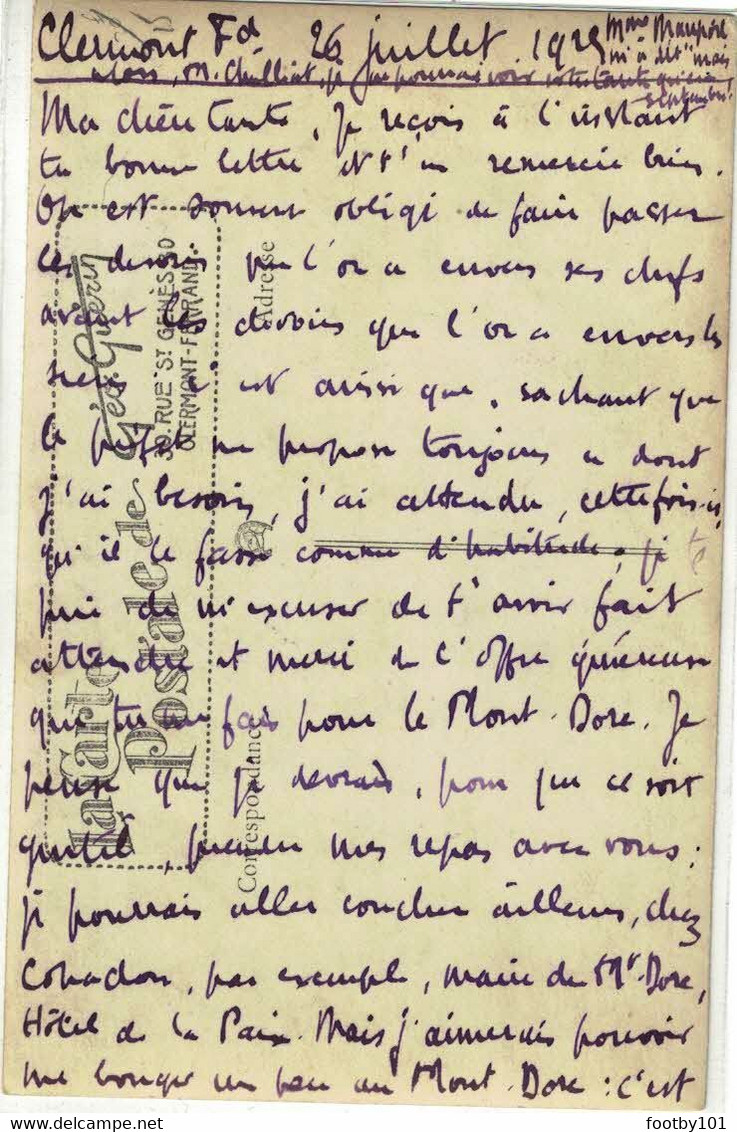 Clermont Fd 26 juillet 1929
Mme
m'a dit "mais
alors, M. Chulliat, je ne pourrais voir votre tante qu'en
septembre!
Ma chère tante, je reçois à l'instant
ta bonne lettre et t'en remercie bien.
On est souvent obligé de faire passer
les devoirs que l'on a envers ses chefs
avant les devoirs que l'on a envers les
siens c'est ainsi que, sachant que
le préfet me propose toujours ce dont
j'ai besoin, j'ai attendu, cette fois-ci,
qu'il le fasse comme d'habitude, je te
prie de m'excuser de t'avoir fait
attendre et merci de l'offre généreuse
que tu me fais pour le Mont-Dore. Je
pense que je devrais, pour que ce soit
, prendre mes repas avec vous :
je pourrais aller coucher ailleurs, chez
Cohadon, par exemple, maire du Mt-Dore,
Hôtel de la Paix. Mais j'aimerais pouvoir
me bouger un peu au Mont-Dore : c'est
La Carte
Postale de
Géo. Guérin
30. RUE ST GENÈS. 30
CLERMONT-FERRAND.
Correspondance
Adresse
footby101